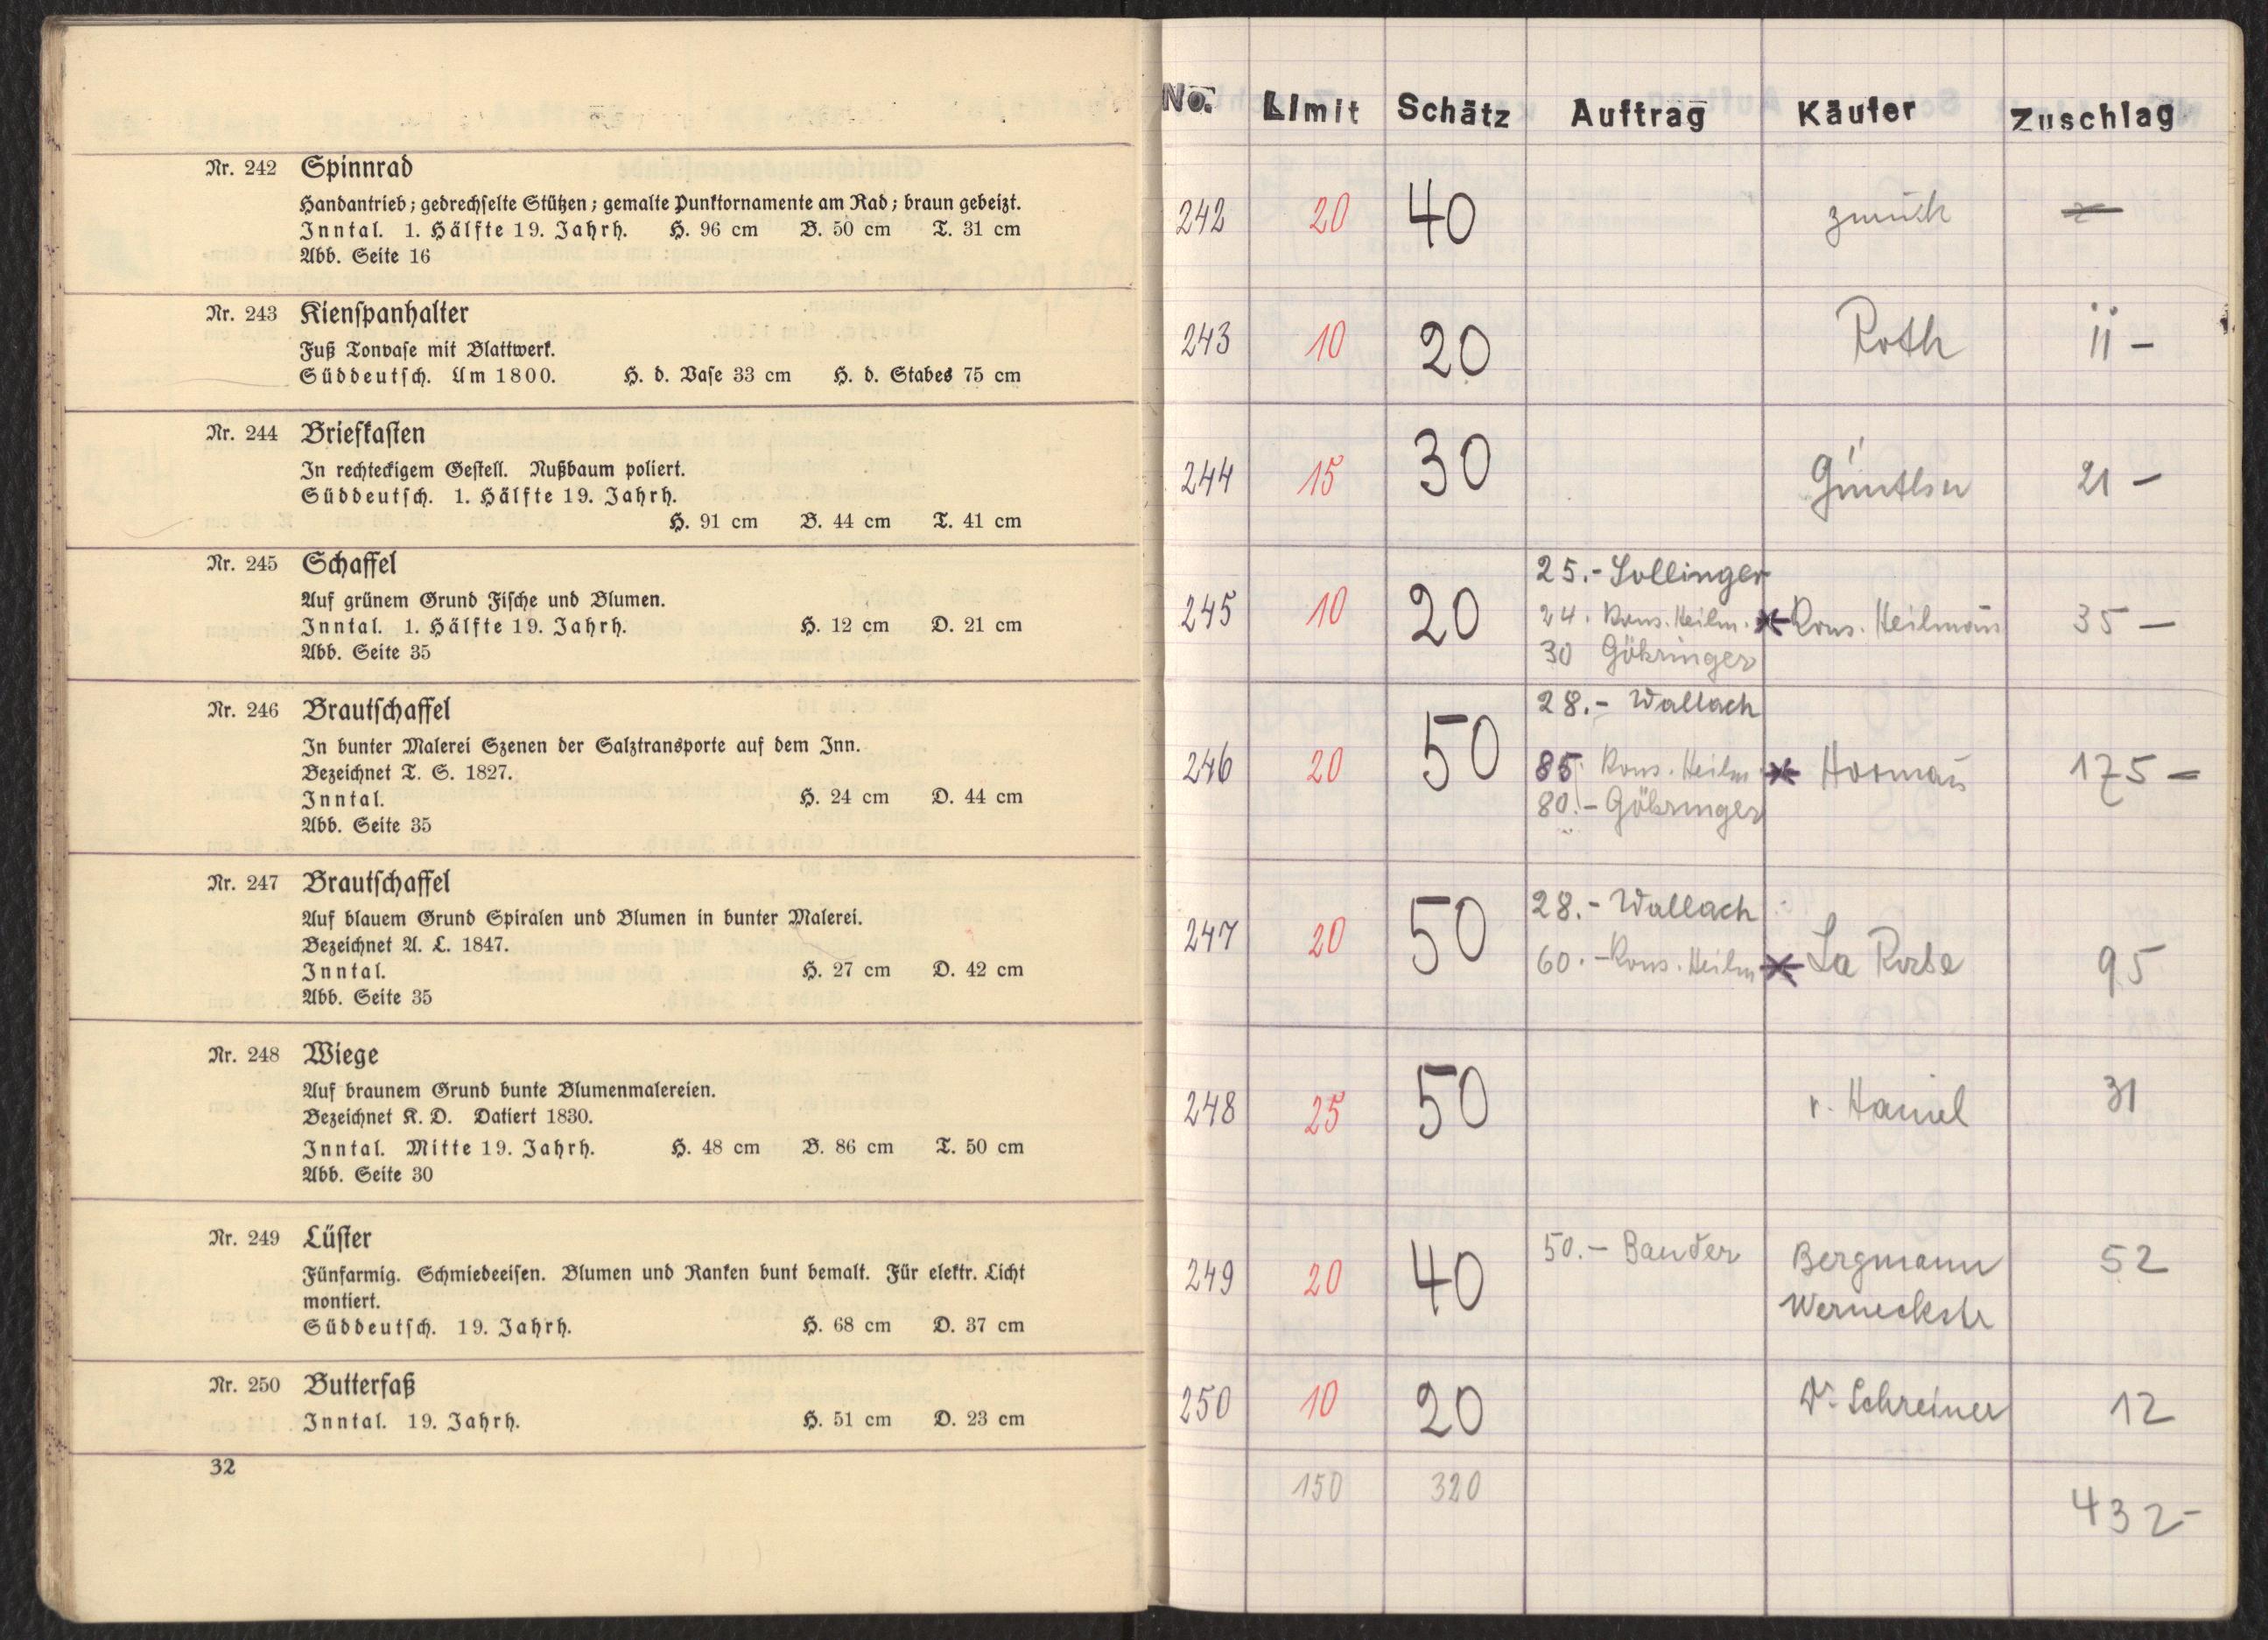 Nr. 242 Spinnrad
Handantrieb; gedrechselte Stützen; gemalte Punktornamente am Rad; braun gebeizt.
Inntal. 1. Hälfte 19. Jahrh. H. 96 cm B. 50 cm T. 31 cm
Abb. Seite 16
Nr. 243 Kienspanhalter
Fuß Tonvase mit Blattwerk.
Süddeutsch. Um 1800. H. d. Vase 33 cm H. d. Stabes 75 cm
Nr. 244 Briefkasten
In rechteckigem Gestell. Nußbaum poliert.
Süddeutsch. 1. Hälfte 19. Jahrh.
H. 91 cm B. 44 cm T. 41 cm
Nr. 245 Schaffel
Auf grünem Grund Fische und Blumen.
Inntal. 1. Hälfte 19. Jahrh. H. 12 cm D. 21 cm
Abb. Seite 35
Nr. 246 Brautschaffel
In bunter Malerei Szenen der Salztransporte auf dem Inn.
Bezeichnet T. S. 1827.
Inntal. H. 24 cm D. 44 cm
Abb. Seite 35
Nr. 247 Brautschaffel
Auf blauem Grund Spiralen und Blumen in bunter Malerei.
Bezeichnet A. L. 1847.
Inntal. H. 27 cm D. 42 cm
Abb. Seite 35
Nr. 248 Wiege
Auf braunem Grund bunte Blumenmalereien.
Bezeichnet K. D. Datiert 1830.
Inntal. Mitte 19. Jahrh. H. 48 cm B. 86 cm T. 50 cm
Abb. Seite 30
Nr. 249 Lüster
Fünfarmig. Schmiedeeisen. Blumen und Ranken bunt bemalt. Für elektr. Licht
montiert.
Süddeutsch. 19. Jahrh. H. 68 cm D. 37 cm
Nr. 250 Butterfaß
Inntal. 19. Jahrh. H. 51 cm D. 23 cm
32
No. Limit Schätz Auftrag Käufer Zuschlag
242 20 40 zurück
243 10 20 Roth 11 –
244 15 30 Günther 21 –
25.- Sollinger
245 10 20 24. Kons. Heilm. Kons. Heilmann 35 –
30 Göhringer
28.- Wallach
246 20 50 85 Kons. Heilm 175 –
80.- Göhringer
28.- Wallach
247 20 50 60.- Kons. Heilm 95
248 25 50 v. Haniel 31
249 20 40 50.- Bauder Bergmann 52
Werneckstr
250 10 20 Dr. Schreiner 12
150 320 432-